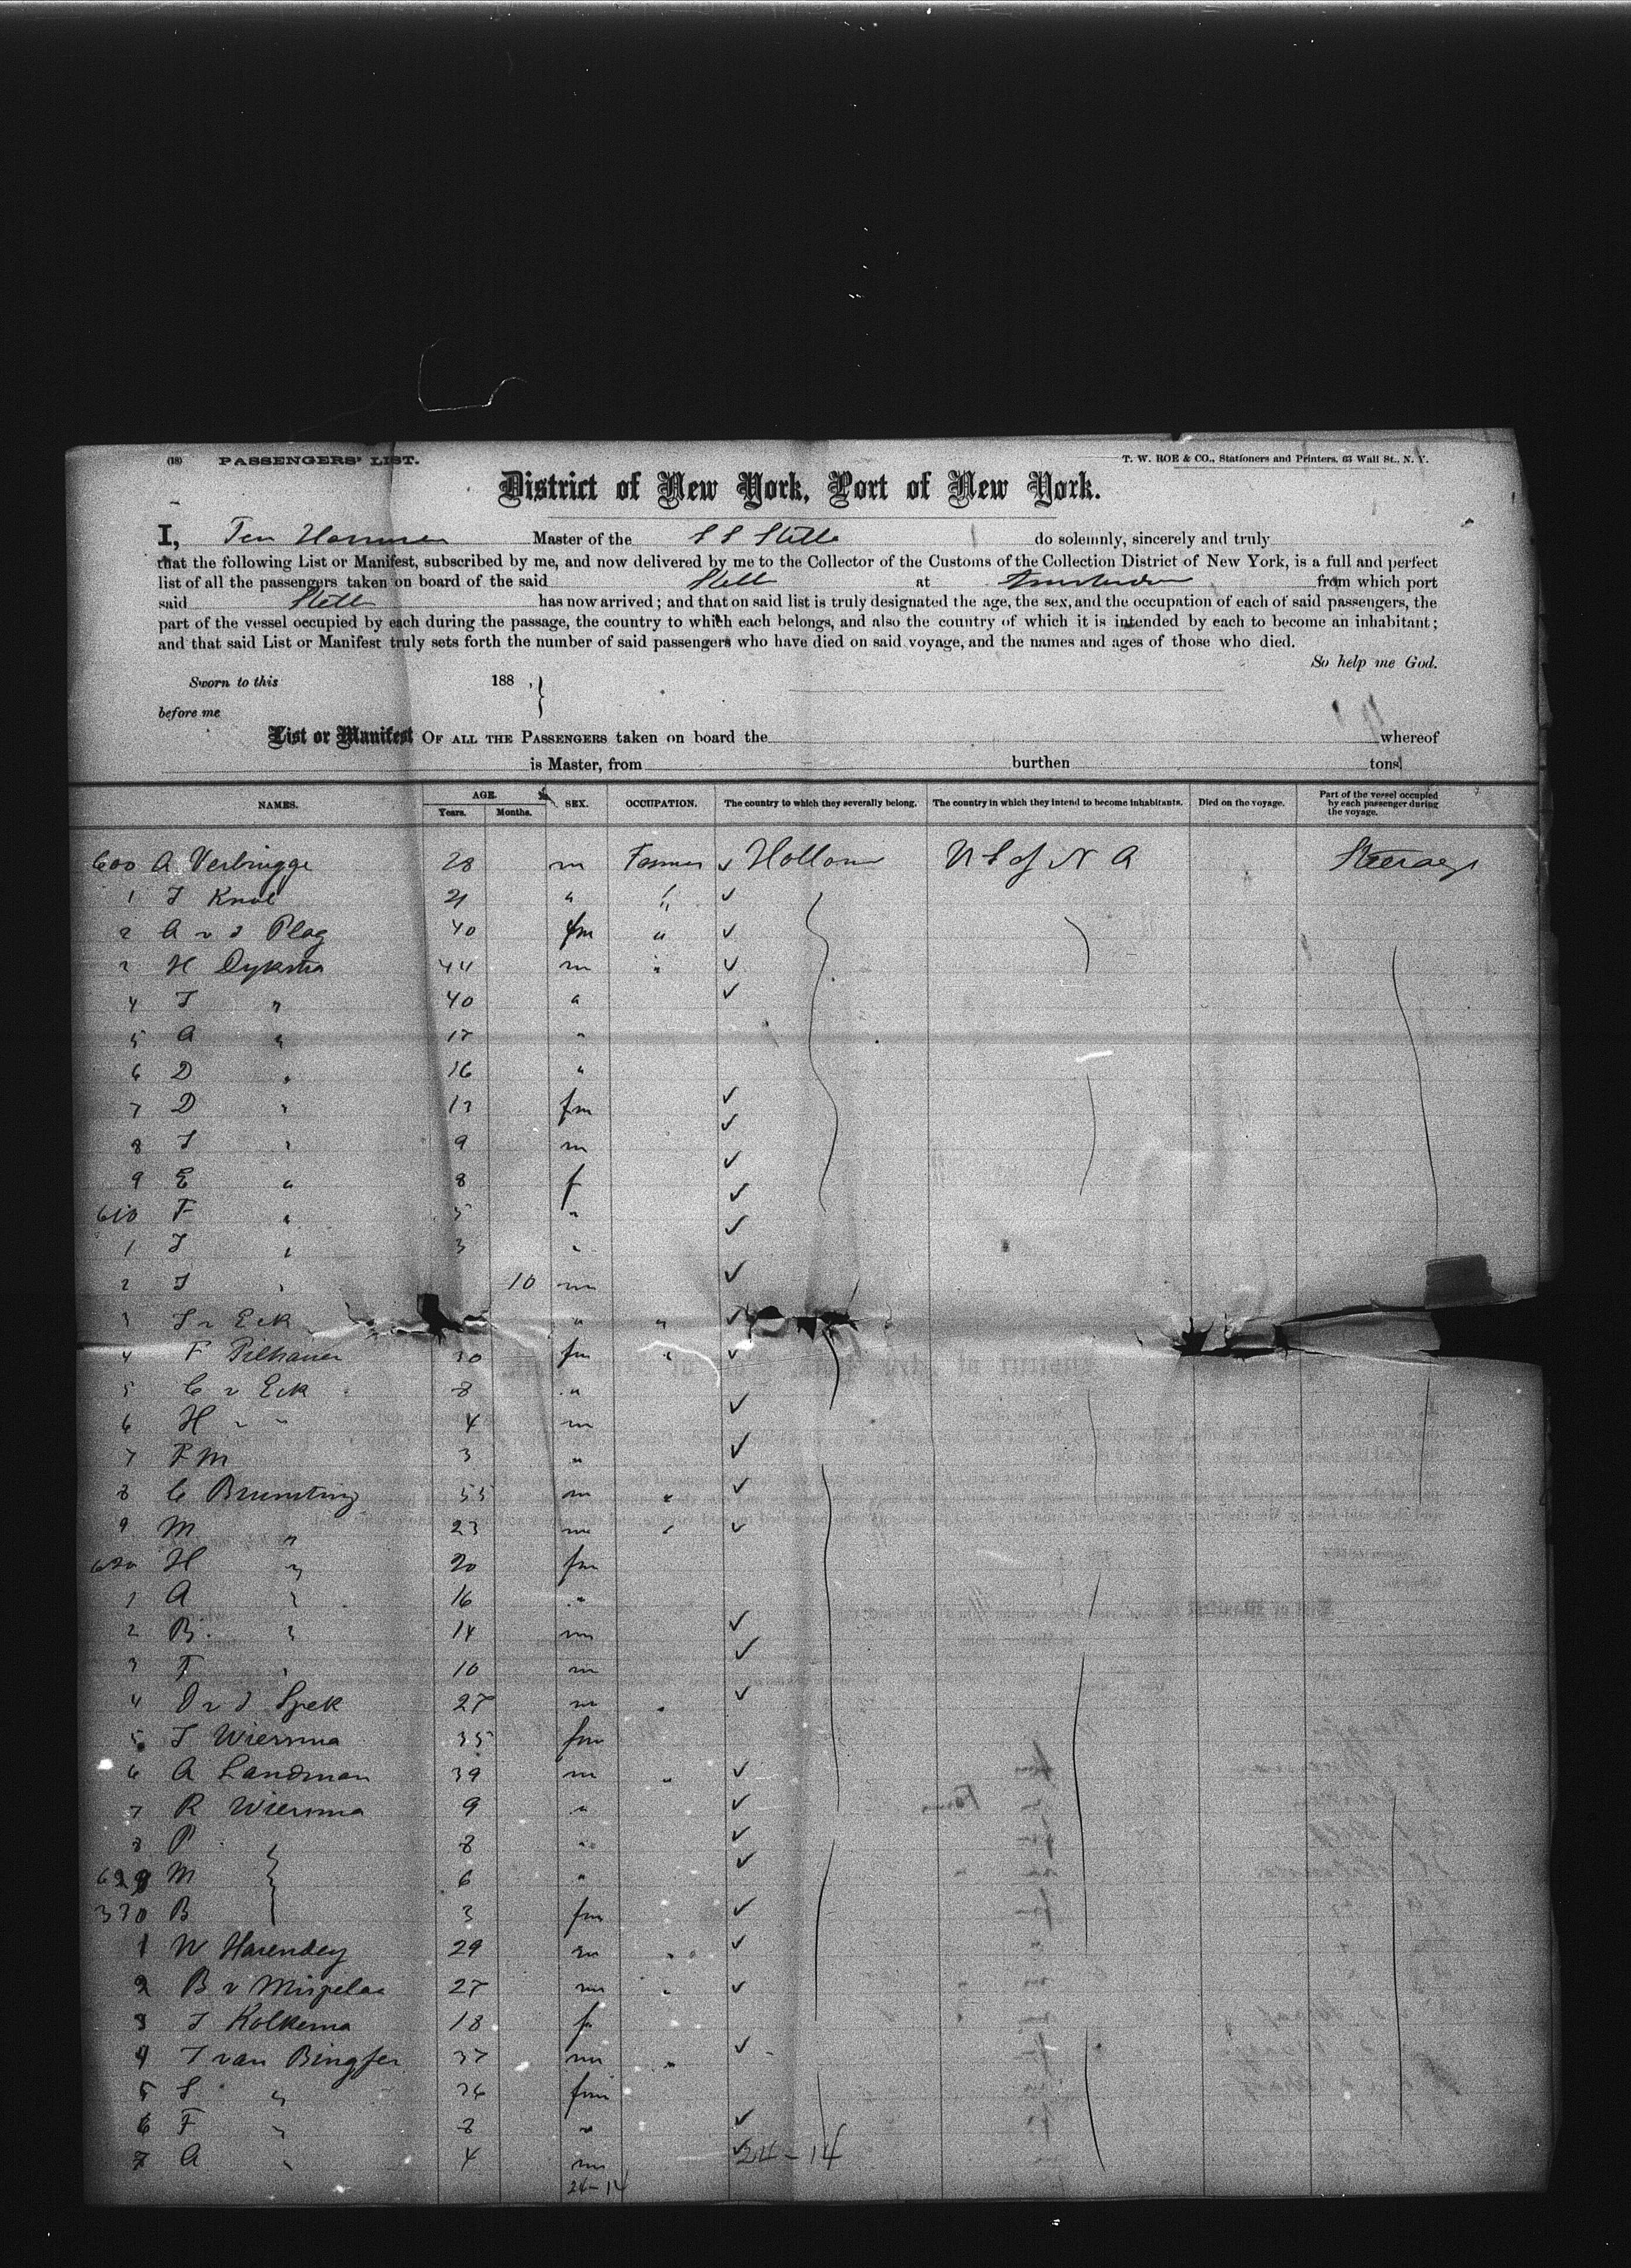 (18) PASSENGERS' LIST. T. W. ROE & CO., Stationers and Printers, 63 Wall St., N. Y.
District of New York, Port of New York.
I, Ten Master of the S S do solemnly, sincerely and truly
that the following List or Manifest, subscribed by me, and now delivered by me to the Collector of the Customs of the Collection District of New York, is a full and perfect
list of all the passengers taken on board of the said at from which port
said has now arrived; and that on said list is truly designated the age, the sex, and the occupation of each of said passengers, the
part of the vessel occupied by each during the passage, the country to which each belongs, and also the country of which it is intended by each to become an inhabitant;
and that said List or Manifest truly sets forth the number of said passengers who have died on said voyage, and the names and ages of those who died.
So help me God.
Sworn to this 188 , }
before me
List or Manifest OF ALL THE PASSENGERS taken on board the whereof
is Master, from burthen tons
NAMES. AGE. Years. Months. SEX. OCCUPATION. The country to which they severally belong. The country in which they intend to become inhabitants. Died on the voyage. Part of the vessel occupied by each passenger during the voyage.
600 A Verbrugge 28 m Farmer ✓ U S of N A Steerage
1 Knol 21 " " ✓
2 A v d Plag 40 fm " ✓
H Dykstra 44 m " ✓
4 " 40 " ✓
5 A " 17 "
6 D " 16 "
7 D " 13 fm ✓
8 " 9 m ✓
9 E " 8 f ✓
610 F " 5 " ✓
1 " 3 " ✓
2 " 10 m ✓
3 v Eck " " ✓
4 F 30 fm " ✓
5 C v Eck 8 "
6 H " " 4 m ✓
7 M 3 " ✓
8 C Brunsting 55 m " ✓
9 M " 23 m " ✓
620 H " 20 fm
1 A " 16 "
2 B " 14 m ✓
3 " 10 m ✓
4 v d Spek 27 m " ✓
5 Wiersma 35 fm
6 A Landman 39 m " ✓
7 R Wiersma 9 " ✓
8 P 8 " ✓
629 M 6 " ✓
330 B 3 fm ✓
1 W Harendey 29 m " ✓
2 B v 27 m " ✓
3 Kolkema 18 f
4 van 37 m " ✓
5 S " 36 fm
6 F " 8 " ✓
7 A " 4 m ✓ 24-14
24-14